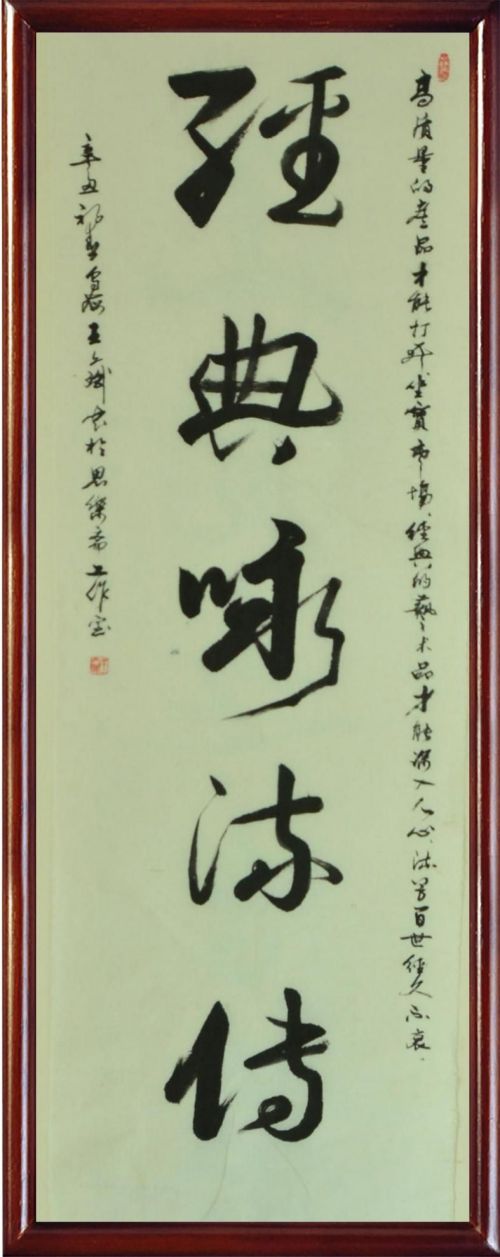 高質量的產品才能打开坐實市場，經典的藝术品才能深入人心，流芳百世經久不衰。
經典咏流傳
辛丑初春王书於思斋工作室